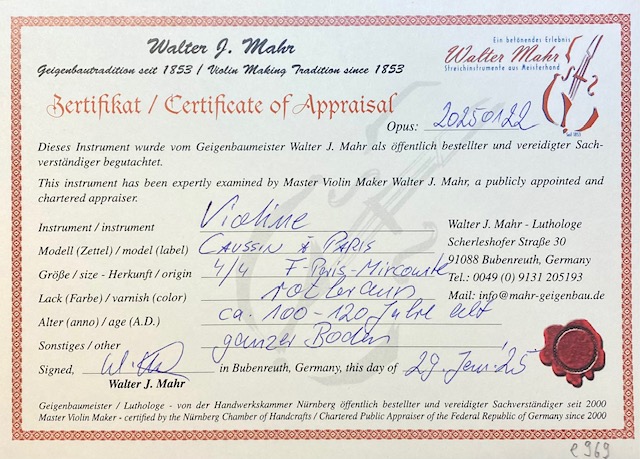 Walter J. Mahr
Geigenbautradition seit 1853 / Violin Making Tradition since 1853
Ein betönendes Erlebnis
Walter Mahr
Streichinstrumente aus Meisterhand
Seit 1853
Zertifikat / Certificate of Appraisal
Opus: 20250122
Dieses Instrument wurde vom Geigenbaumeister Walter J. Mahr als öffentlich bestellter und vereidigter Sach-
verständiger begutachtet.
This instrument has been expertly examined by Master Violin Maker Walter J. Mahr, a publicly appointed and
chartered appraiser.
Instrument / instrument Violine
Modell (Zettel) / model (label) CAUSSIN À PARIS
Größe / size - Herkunft / origin 4/4 F-Paris-Mircourte
Lack (Farbe) / varnish (color) rotbraun
Alter (anno) / age (A.D.) ca. 100-120 Jahre alt
Sonstiges / other ganzer Boden
Walter J. Mahr - Luthologe
Scherleshofer Straße 30
91088 Bubenreuth, Germany
Tel.: 0049 (0) 9131 205193
Mail: info@mahr-geigenbau.de
Signed, in Bubenreuth, Germany, this day of 29. Jan. '25
Walter J. Mahr
Geigenbaumeister / Luthologe - von der Handwerkskammer Nürnberg öffentlich bestellter und vereidigter Sachverständiger seit 2000
Master Violin Maker - certified by the Nürnberg Chamber of Handcrafts / Chartered Public Appraiser of the Federal Republic of Germany since 2000
e969